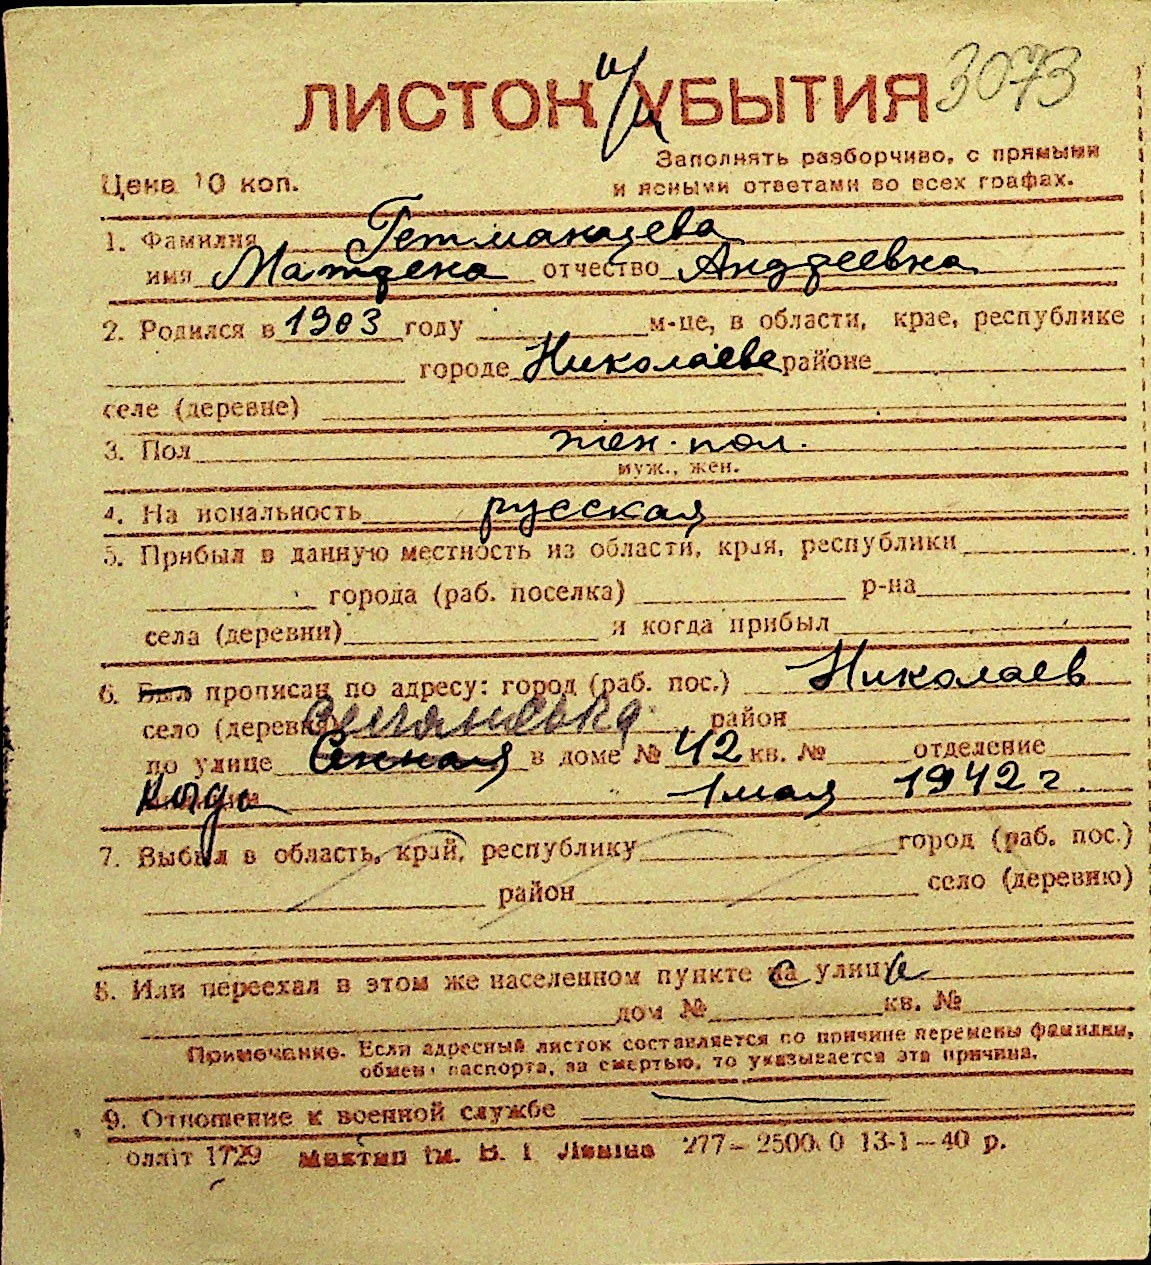 ЛИСТОК УБЫТИЯ 3073
Заполнять разборчиво, с прямыми
Цена 10 коп. и ясными ответами во всех графах.
1. Фамилия Гетманцева
имя Матрена отчество Андреевна
2. Родился в 1903 году м-це, в области, крае, республике
городе Николаеве районе
селе (деревне)
3. Пол жен. пол.
муж., жен.
4. На иональность русская
5. Прибыл в данную местность из области, края, республики
города (раб. поселка) р-на
села (деревни) и когда прибыл
6. Был прописан по адресу: город (раб. пос.) Николаев
село (деревня) район
по улице Сенная в доме № 42 кв. № отделение
Когда 1 мая 1942 г.
7. Выбыл в область, край, республику город (раб. пос.)
район село (деревню)
8. Или переехал в этом же населенном пункте с улицы
дом № кв. №
Примечание. Если адресный листок составляется по причине перемены фамилии,
обмена паспорта, за смертью, то указывается эта причина.
9. Отношение к военной службе
олліт 1729 ім. В. І Леніна 277 — 2500 0 13-1 — 40 р.